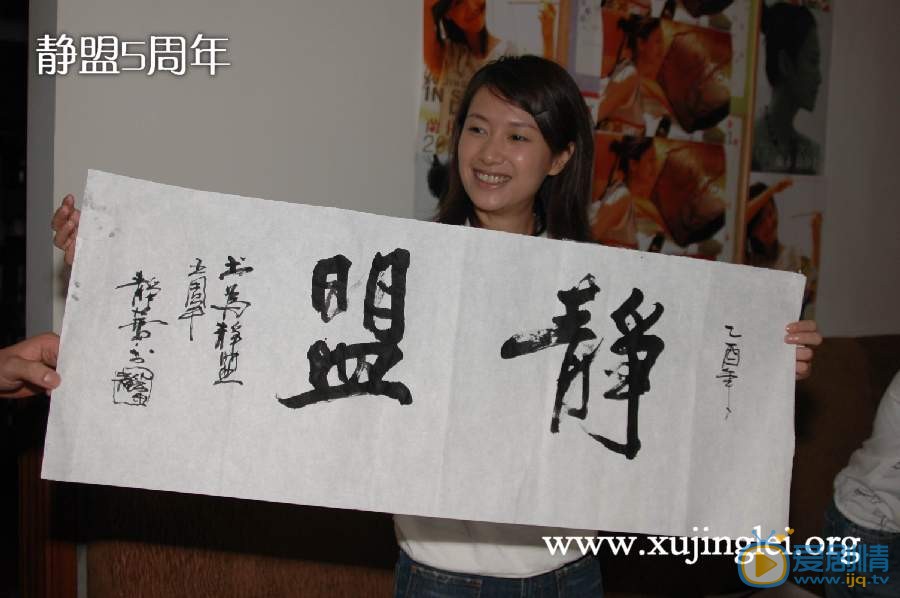 静盟5周年
乙酉年
静盟
书为静盟
五周年
www.xujinglei.org
爱剧情
www.ijq.tv